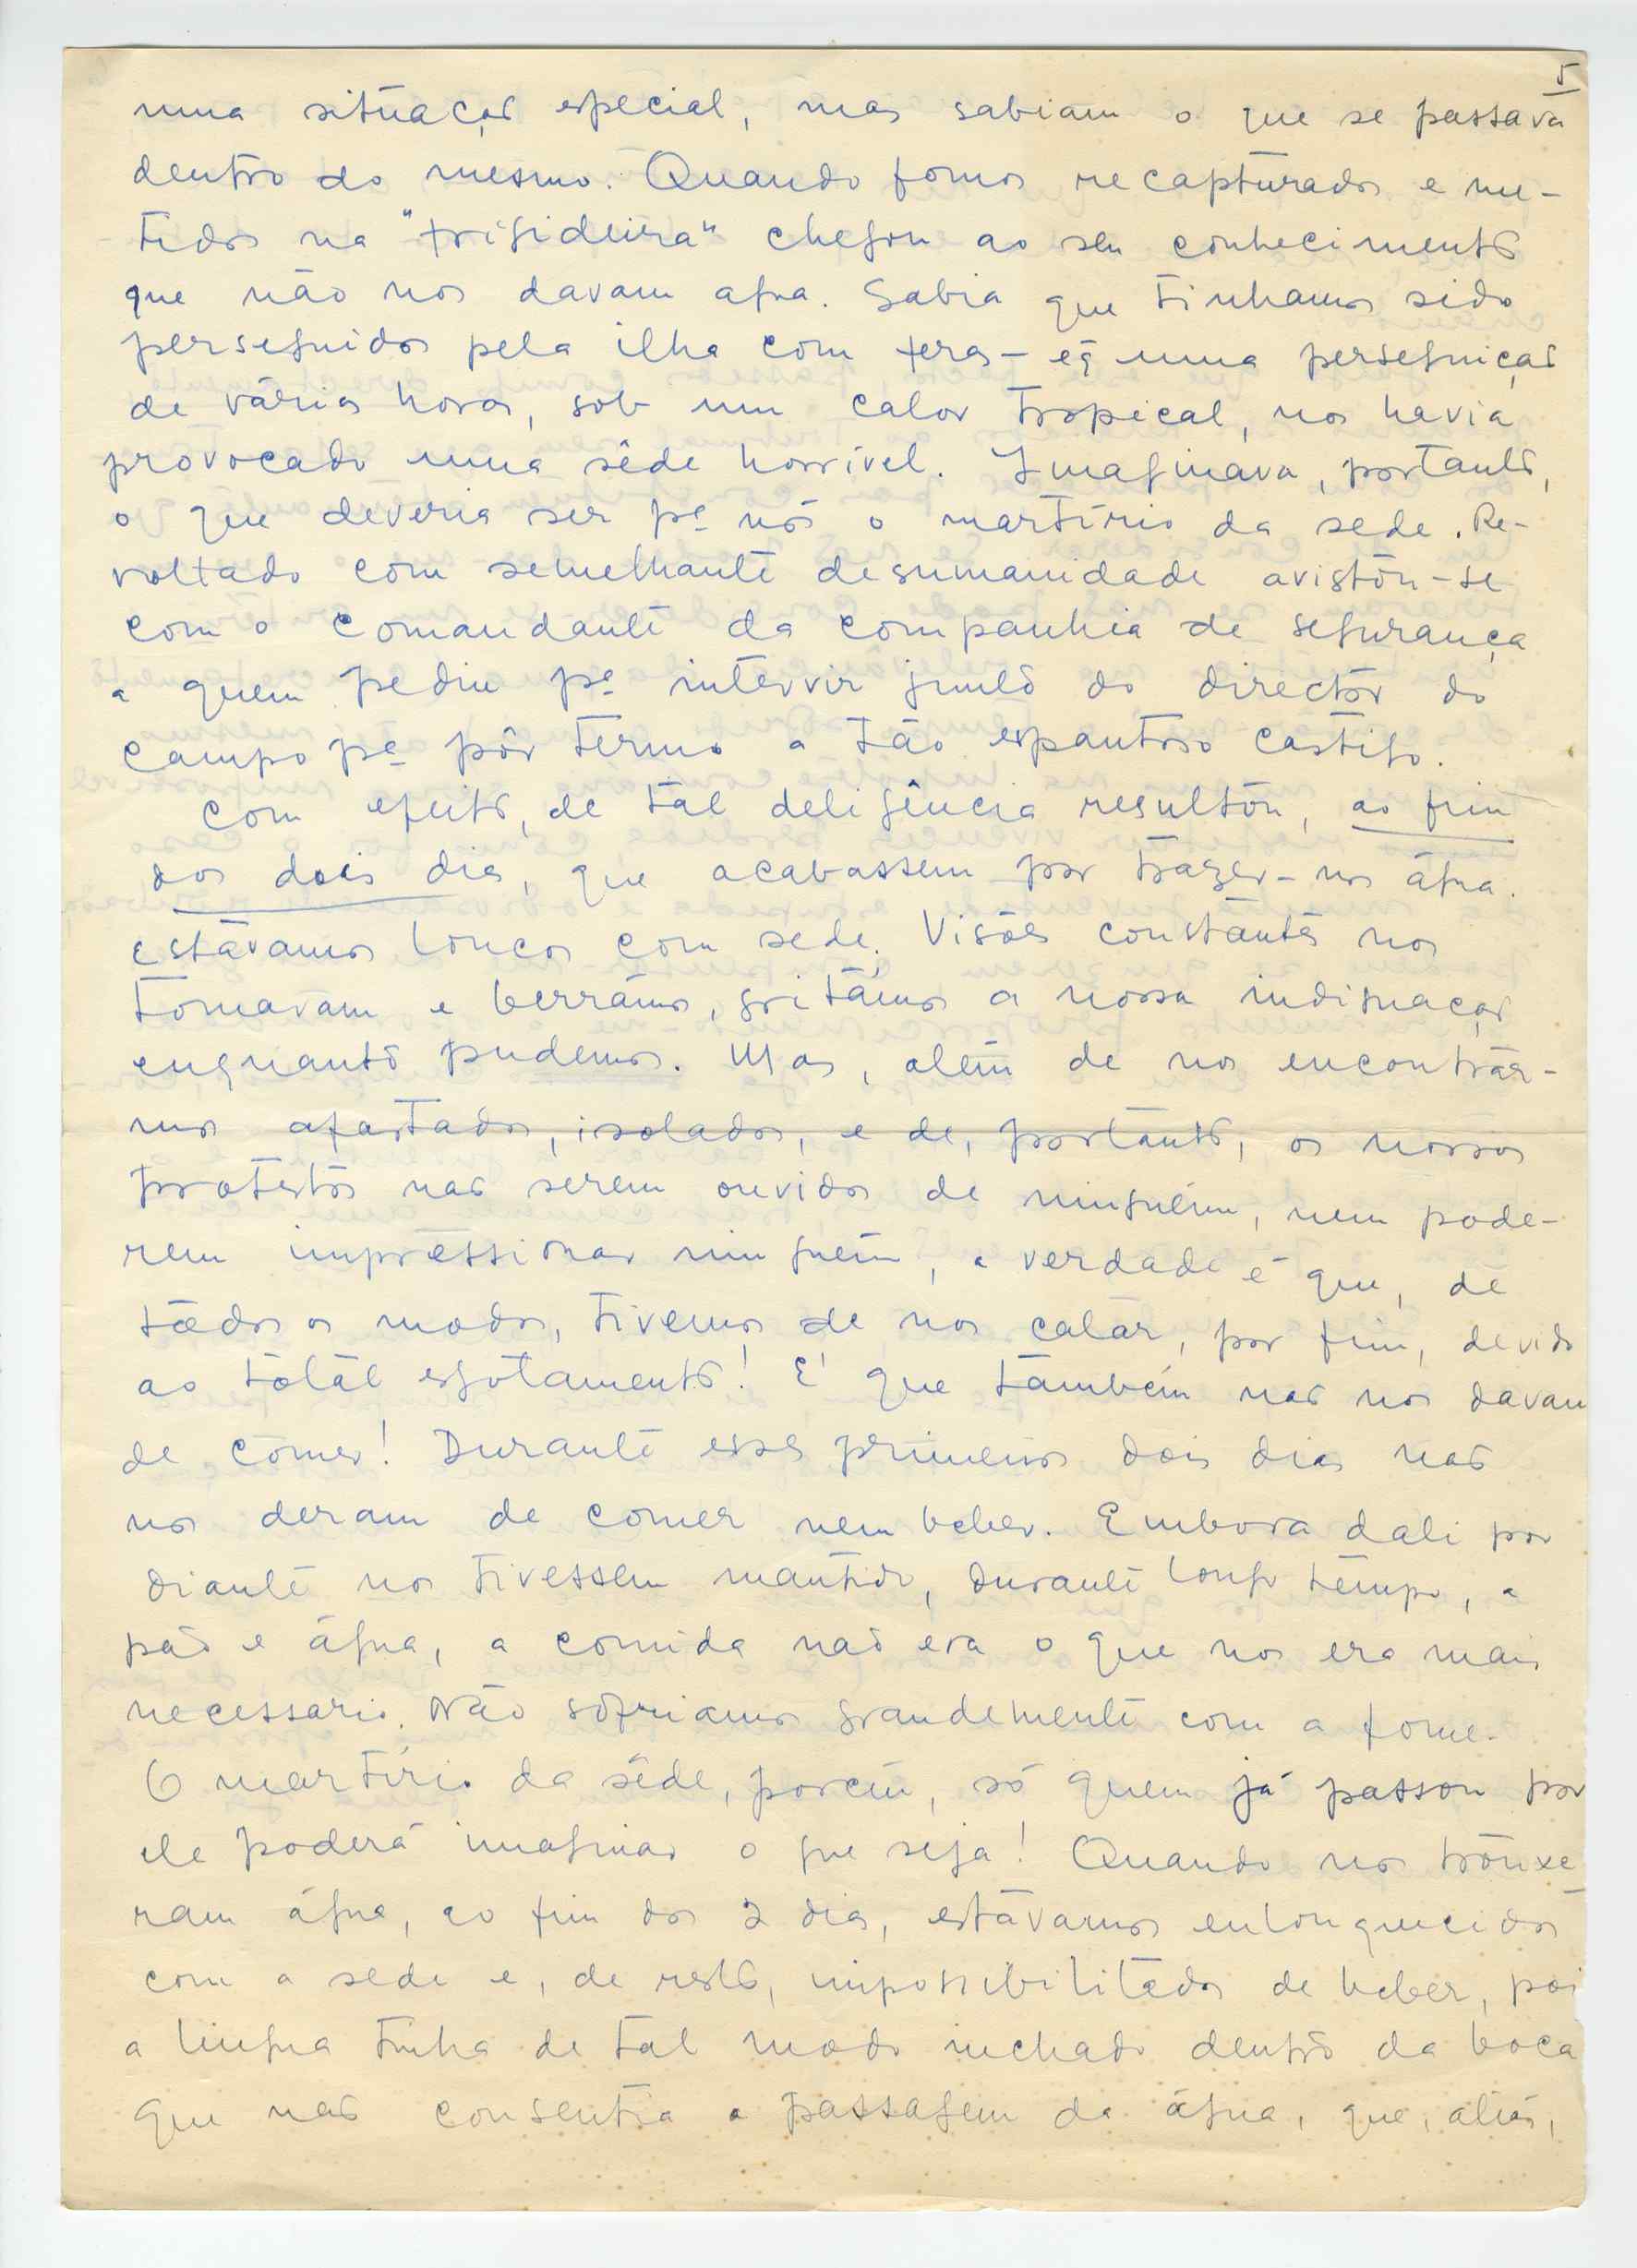 5
numa situação especial, mas sabiam o que se passava
dentro do mesmo. Quando fomos recapturados e me-
tidos na "frigideira" chegou ao seu conhecimento
que não nos davam agua. Sabia que tinhamos sido
perseguidos pela ilha com feras - e q uma perseguição
de várias horas, sob um calor tropical, nos havia
provocado uma sêde horrivel. Imaginava, portanto,
o que deveria ser pª nós o martírio da sede. Re-
voltado com semelhante desumanidade avistou-se
com o comandante da companhia de segurança
a quem pediu pª intervir junto do director do
campo pª pôr termo a tão espantoso castigo.
Com efeito, de tal deligência resultou, ao fim
dos dois dias, que acabassem por trazer-nos água.
Estávamos loucos com sede. Visões constantes nos
tomavam e berrámos, gritámos a nossa indignação
enquanto pudemos. Mas, além de nos encontrar-
mos afastados, isolados, e de, portanto, os nossos
protestos não serem ouvidos de ninguém, nem pode-
rem impressionar ninguém, a verdade é que, de
todos os modos, tivemos de nos calar, por fim, devido
ao total esgotamento! É que também não nos davam
de comer! Durante esses primeiros dois dias não
nos deram de comer nem beber. Embora dali por
diante nos tivessem mantido, durante longo tempo, a
pão e água, a comida não era o que nos era mais
necessario. Não sofriamos grandemente com a fome.
O martírio da sêde, porém, só quem já passou por
ele poderá imaginar o que seja! Quando nos trouxe
ram água, ao fim dos 2 dias, estávamos enlouquecidos
com a sede e, de resto, impossibilitados de beber, poi
a lingua tinha de tal modo inchado dentro da boca
que não consentia a passagem da água, que, aliás,